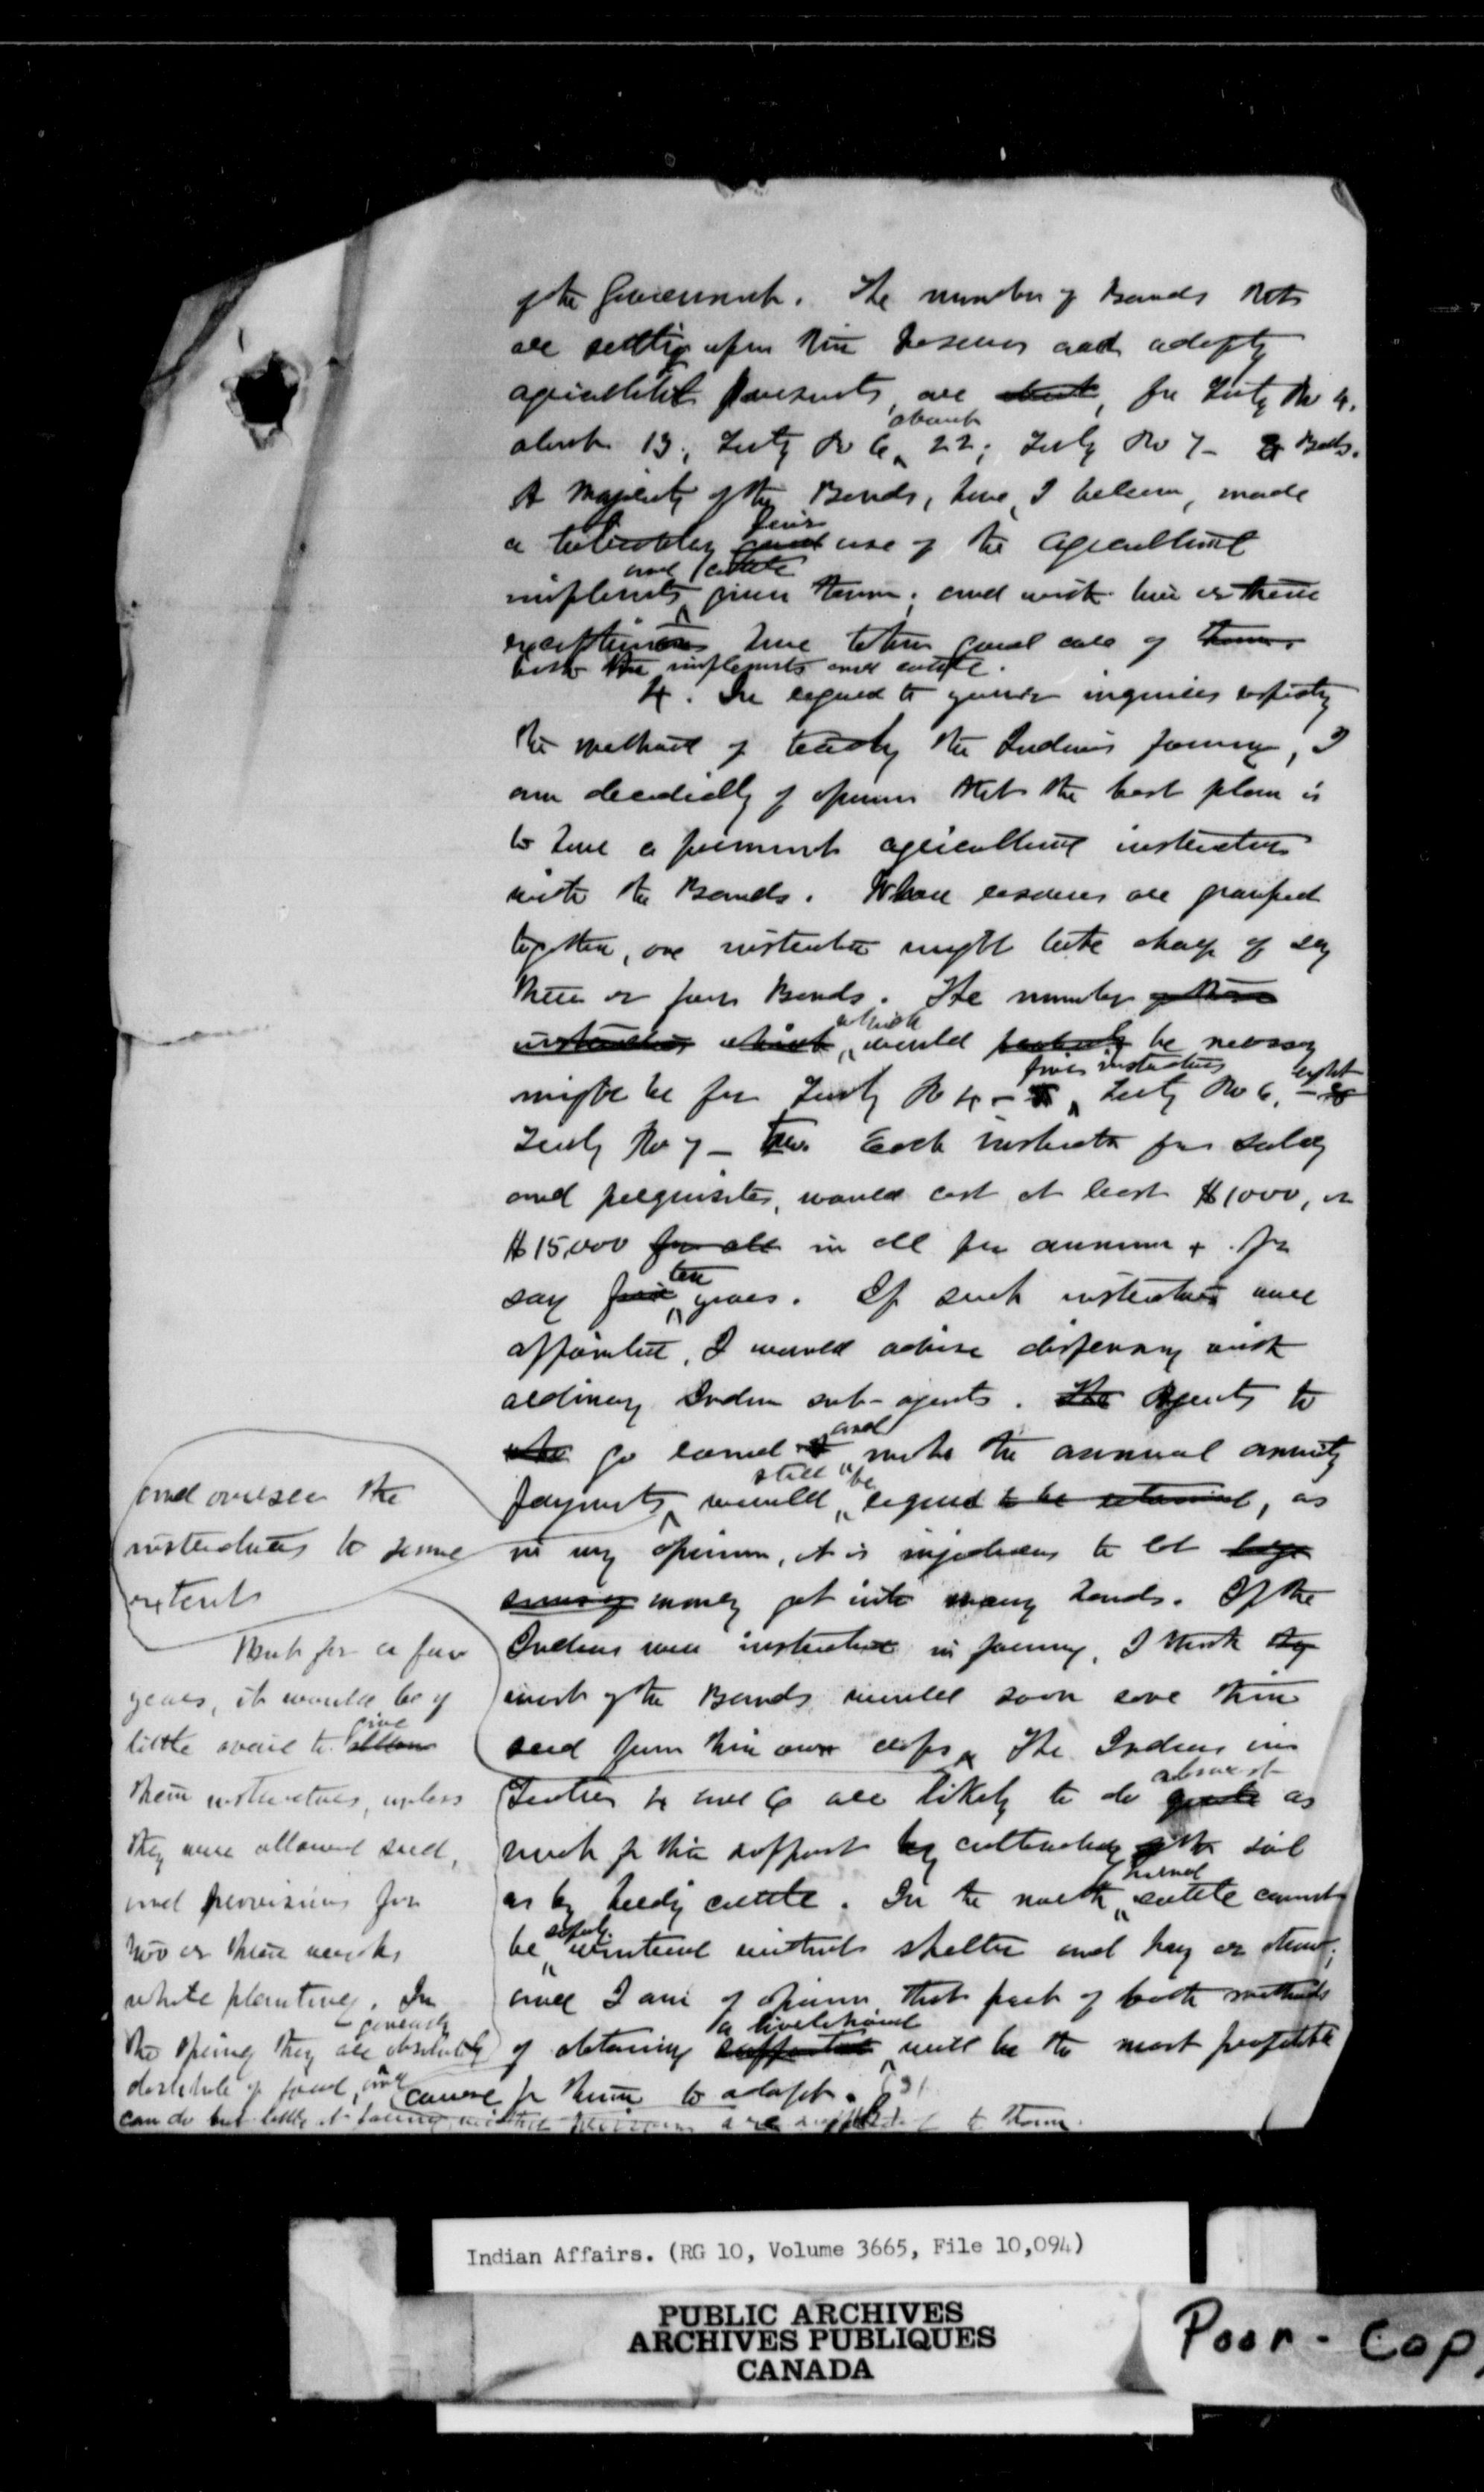 of the Government. The number of Bands that
are settling upon their Reserves and adopting
agricultural pursuits, are about, for Treaty No 4.
about 13; Treaty No 6, about 22; Treaty No 7 - Bands.
A majority of the Bands, have, I believe, made
a tolerably good fair use of the agricultural
implements and cattle given them; and with two or three
exceptions have taken good care of them
both the implements and cattle.
4. In regard to your inquiries respecting
the method of teaching the Indians farming, I
am decidedly of opinion that the best plan is
to have a permanent agricultural instructor
with the Bands. Where reserves are grouped
together, one instructor might take charge of say
three or four Bands. The number of these
instructors which which would probably be necessary
might be for Treaty No 4 - five instructors, Treaty No 6, - eight
Treaty No 7 - two. Each instructor for salary
and perquisites, would cost at least $1000, or
$15,000 for all in all per annum + for
say five ten years. If such instructors were
appointed, I would advise dispensing with
ordinary Indian sub-agents. The Agents to
who go round and make the annual annuity
payments would still be required to be retained, as
in my opinion, it is injudicious to let large
sums of money get into many hands. If the
Indians were instructed in farming, I think they
most of the Bands would soon save their
seed from their own crops. The Indians in
Treaties 4 and 6 are likely to do quite almost as
much for their support by cultivating of the soil
as by herding cattle. In the north, horned cattle cannot
be safely wintered without shelter and hay or straw;
and I am of opinion that part of both methods
of obtaining a livelihood will be the most profitable
course for them to adopt.
and oversee the
instructors to some
extent
But for a few
years, it would be of
little avail to allow give
them instructors, unless
they were allowed seed,
and provisions for
two or three weeks
while planting. In
the spring they are generally absolutely
destitute of food, and
can do but little at farming without provisions are supplied to them.
Indian Affairs. (RG 10, Volume 3665, File 10,094)
PUBLIC ARCHIVES
ARCHIVES PUBLIQUES
CANADA
Poor - Cop